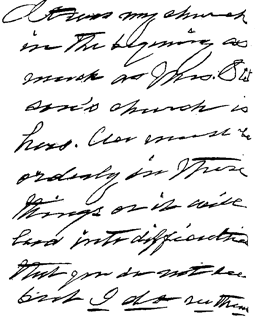 It was my church
in the begining as
much as Mrs. Stet
son's church is
hers. We must be
orderly in these
things or it will
lead into difficulties
that you do not see
but I do see them